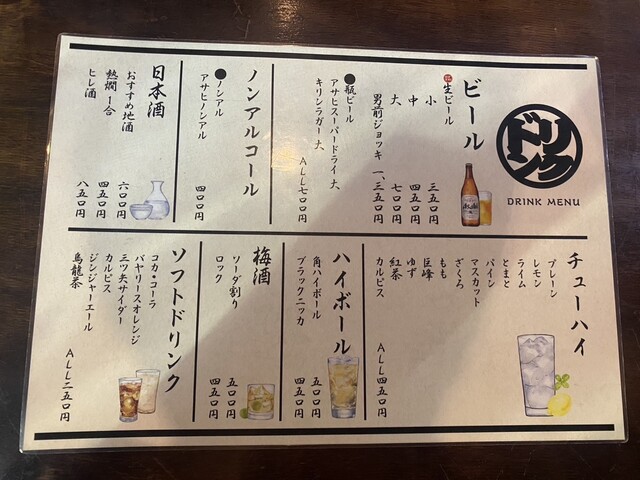 ドリンク
DRINK MENU
ビール
生ビール
小 三五〇円
中 四五〇円
大 七〇〇円
男前ジョッキ 一、三五〇円
●瓶ビール
アサヒスーパードライ 大
キリンラガー 大
ALL七〇〇円
ノンアルコール
●ノンアル
アサヒノンアル 四〇〇円
日本酒
おすすめ地酒 六〇〇円
熱燗 1合 四五〇円
ヒレ酒 八五〇円
チューハイ
プレーン
レモン
ライム
とまと
パイン
マスカット
ざくろ
もも
巨峰
ゆず
紅茶
カルピス
ALL四五〇円
ハイボール
角ハイボール 五〇〇円
ブラックニッカ 四五〇円
梅酒
ソーダ割り 五〇〇円
ロック 四五〇円
ソフトドリンク
コカ・コーラ
バヤリースオレンジ
三ツ矢サイダー
カルピス
ジンジャーエール
烏龍茶
ALL二五〇円